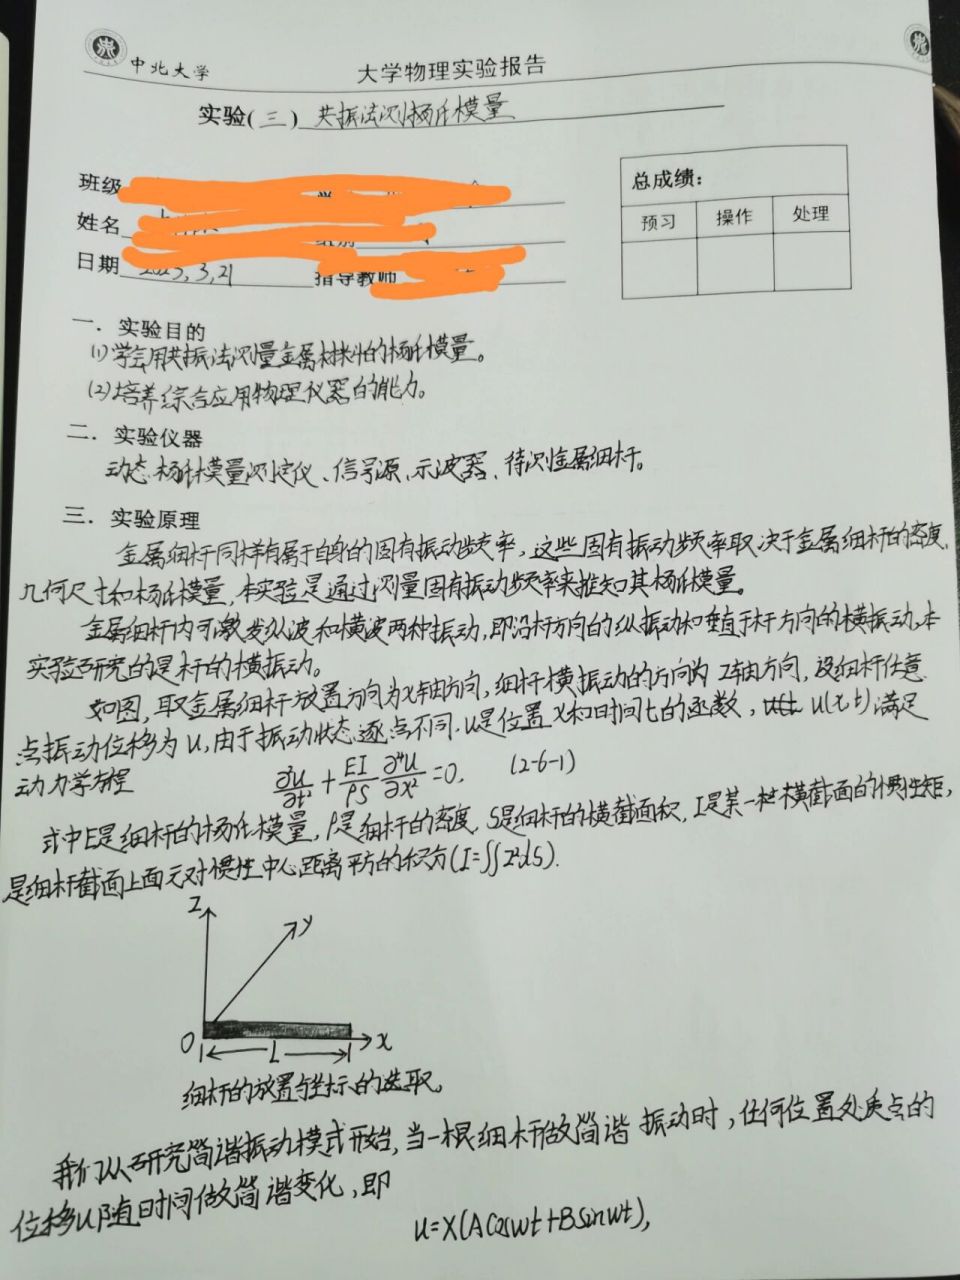 中北大学
大学物理实验报告
实验(三) 共振法测杨氏模量
班级
姓名
日期 3,21 指导教师
总成绩:
预习 操作 处理
一. 实验目的
(1)学会用共振法测量金属材料的杨氏模量。
(2)培养综合应用物理仪器的能力。
二. 实验仪器
动态杨氏模量测定仪、信号源、示波器、待测金属细杆。
三. 实验原理
金属细杆同样有属于自身的固有振动频率,这些固有振动频率取决于金属细杆的密度、
几何尺寸和杨氏模量,本实验是通过测量固有振动频率来推知其杨氏模量。
金属细杆内可激发纵波和横波两种振动,即沿杆方向的纵振动和垂直于杆方向的横振动,本
实验研究的是杆的横振动。
如图,取金属细杆放置方向为x轴方向,细杆横振动的方向为Z轴方向,设细杆任意
点振动位移为u,由于振动状态逐点不同,u是位置x和时间t的函数, u(x,t)满足
动力学方程 ∂²u/∂t² + EI/ρS ∂⁴u/∂x² =0, (2-6-1)
式中E是细杆的杨氏模量,ρ是细杆的密度,S是细杆的横截面积,I是某一横截面的惯性矩,
是细杆截面上面元对惯性中心距离平方的积分(I=∬z²dS).
Z
y
O L x
细杆的放置与坐标的选取。
我们从研究简谐振动模式开始,当一根细杆做简谐振动时,任何位置处质点的
位移u随时间做简谐变化,即
u=X(Acosωt+Bsinωt),